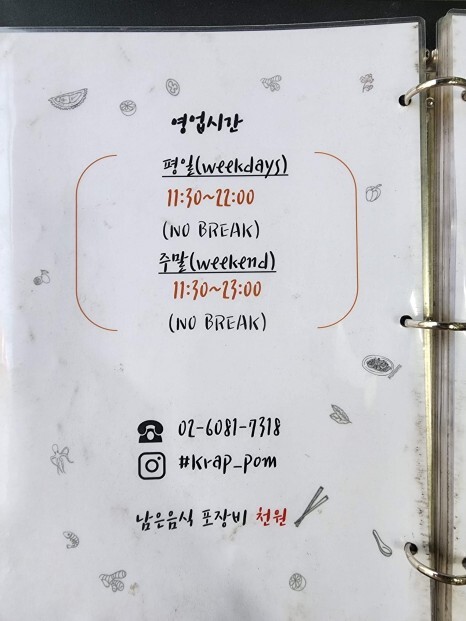 영업시간
평일(weekdays)
11:30~22:00
(NO BREAK)
주말(weekend)
11:30~23:00
(NO BREAK)
02-6081-7318
#krap_pom
남은음식 포장비 천원